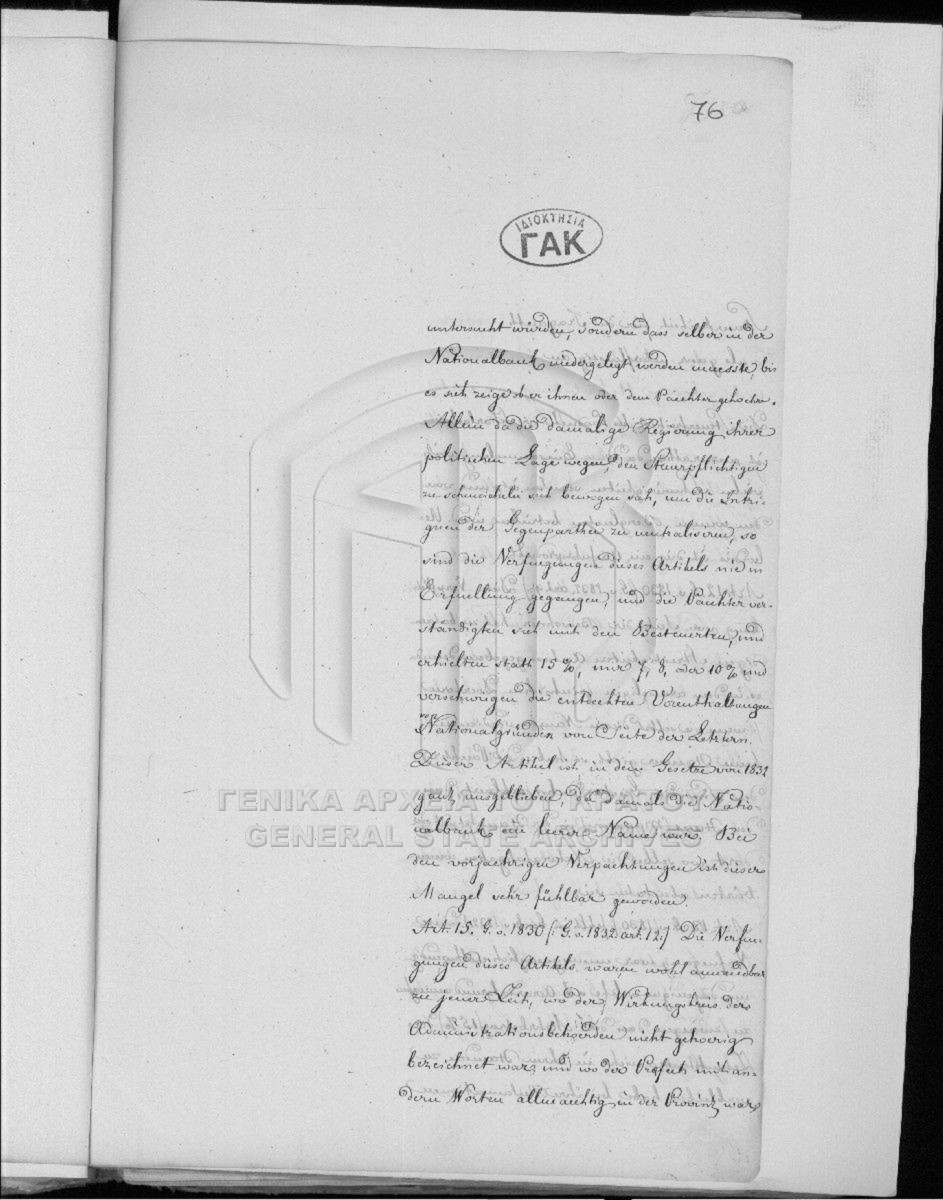 76
ΙΔΙΟΚΤΗΣΙΑ
ΓΑΚ
untersucht würden, sondern dass selber in der
Nationalbank niedergelegt werden muesste, bis
es sich zeige ob er ihnen oder dem Paechter gehoere.
Allein da die damalige Regierung, ihrer
politischen Lage wegen, den Steuerpflichtigen
zu schmeicheln sich bewogen sah, um die Intri-
guen der Gegenparthei zu neutralisiren, so
sind die Verfuegungen dieses Artikels nie in
Erfuellung gegangen, und die Paechter ver-
ständigten sich mit den Besteuerten, und
erhielten statt 15%, nur 7, 8, oder 10% und
verschwiegen die entdeckten Vorenthaltungen
von
Nationalgründen von Seite der Letztern.
Dieser Artikel ist in dem Gesetze von 1832
ganz ausgeblieben, da damals die Natio-
nalbank ein leerer Name war. Bei
den vorjaehrigen Verpachtungen ist dieser
Mangel sehr fühlbar geworden.
Art. 15. G. v. 1830 [: G. v. 1832 art. 12:] Die Verfue-
gungen dieses Artikels waren wohl anwendbar
zu jener Zeit, wo der Wirkungskreis der
Administrationsbehoerden nicht gehoerig
bezeichnet war, und wo der Praefect mit an-
dern Worten allmaechtig in der Provinz war,
ΓΕΝΙΚΑ ΑΡΧΕΙΑ ΤΟΥ ΚΡΑΤΟΥΣ
GENERAL STATE ARCHIVES